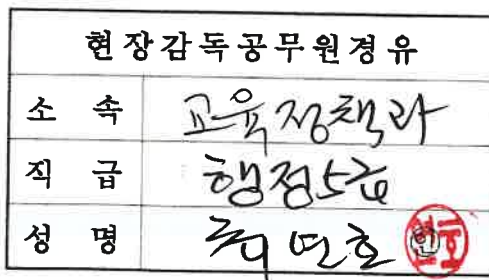 현장감독공무원경유
소 속 교육정책과
직 급 행정5급
성 명 연호 인